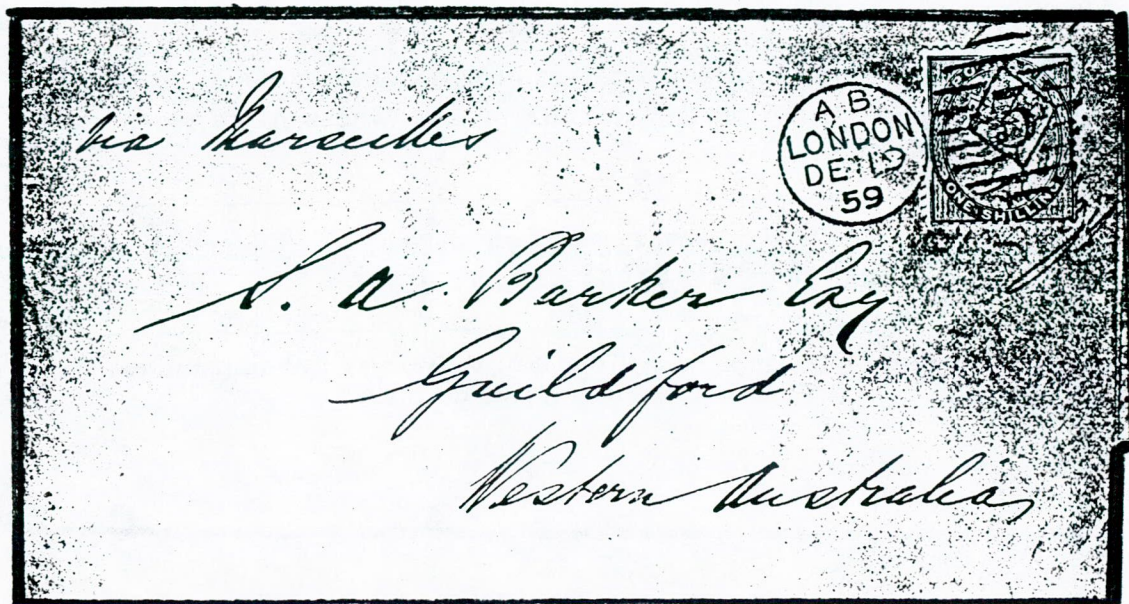 via Marseilles
A B
LONDON
DE 12
59
ONE SHILLING
S. A. Barker Esq
Guildford
Western Australia